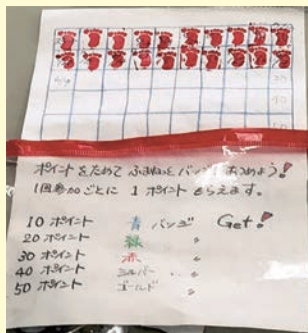 30
40
ポイントをためて ふまねっと バンド! あつめよう!
1回参加ごとに 1 ポイント もらえます。
10 ポイント 青 バンド Get!
20 ポイント 緑 〃
30 ポイント 赤 〃
40 ポイント シルバー 〃
50 ポイント ゴールド 〃